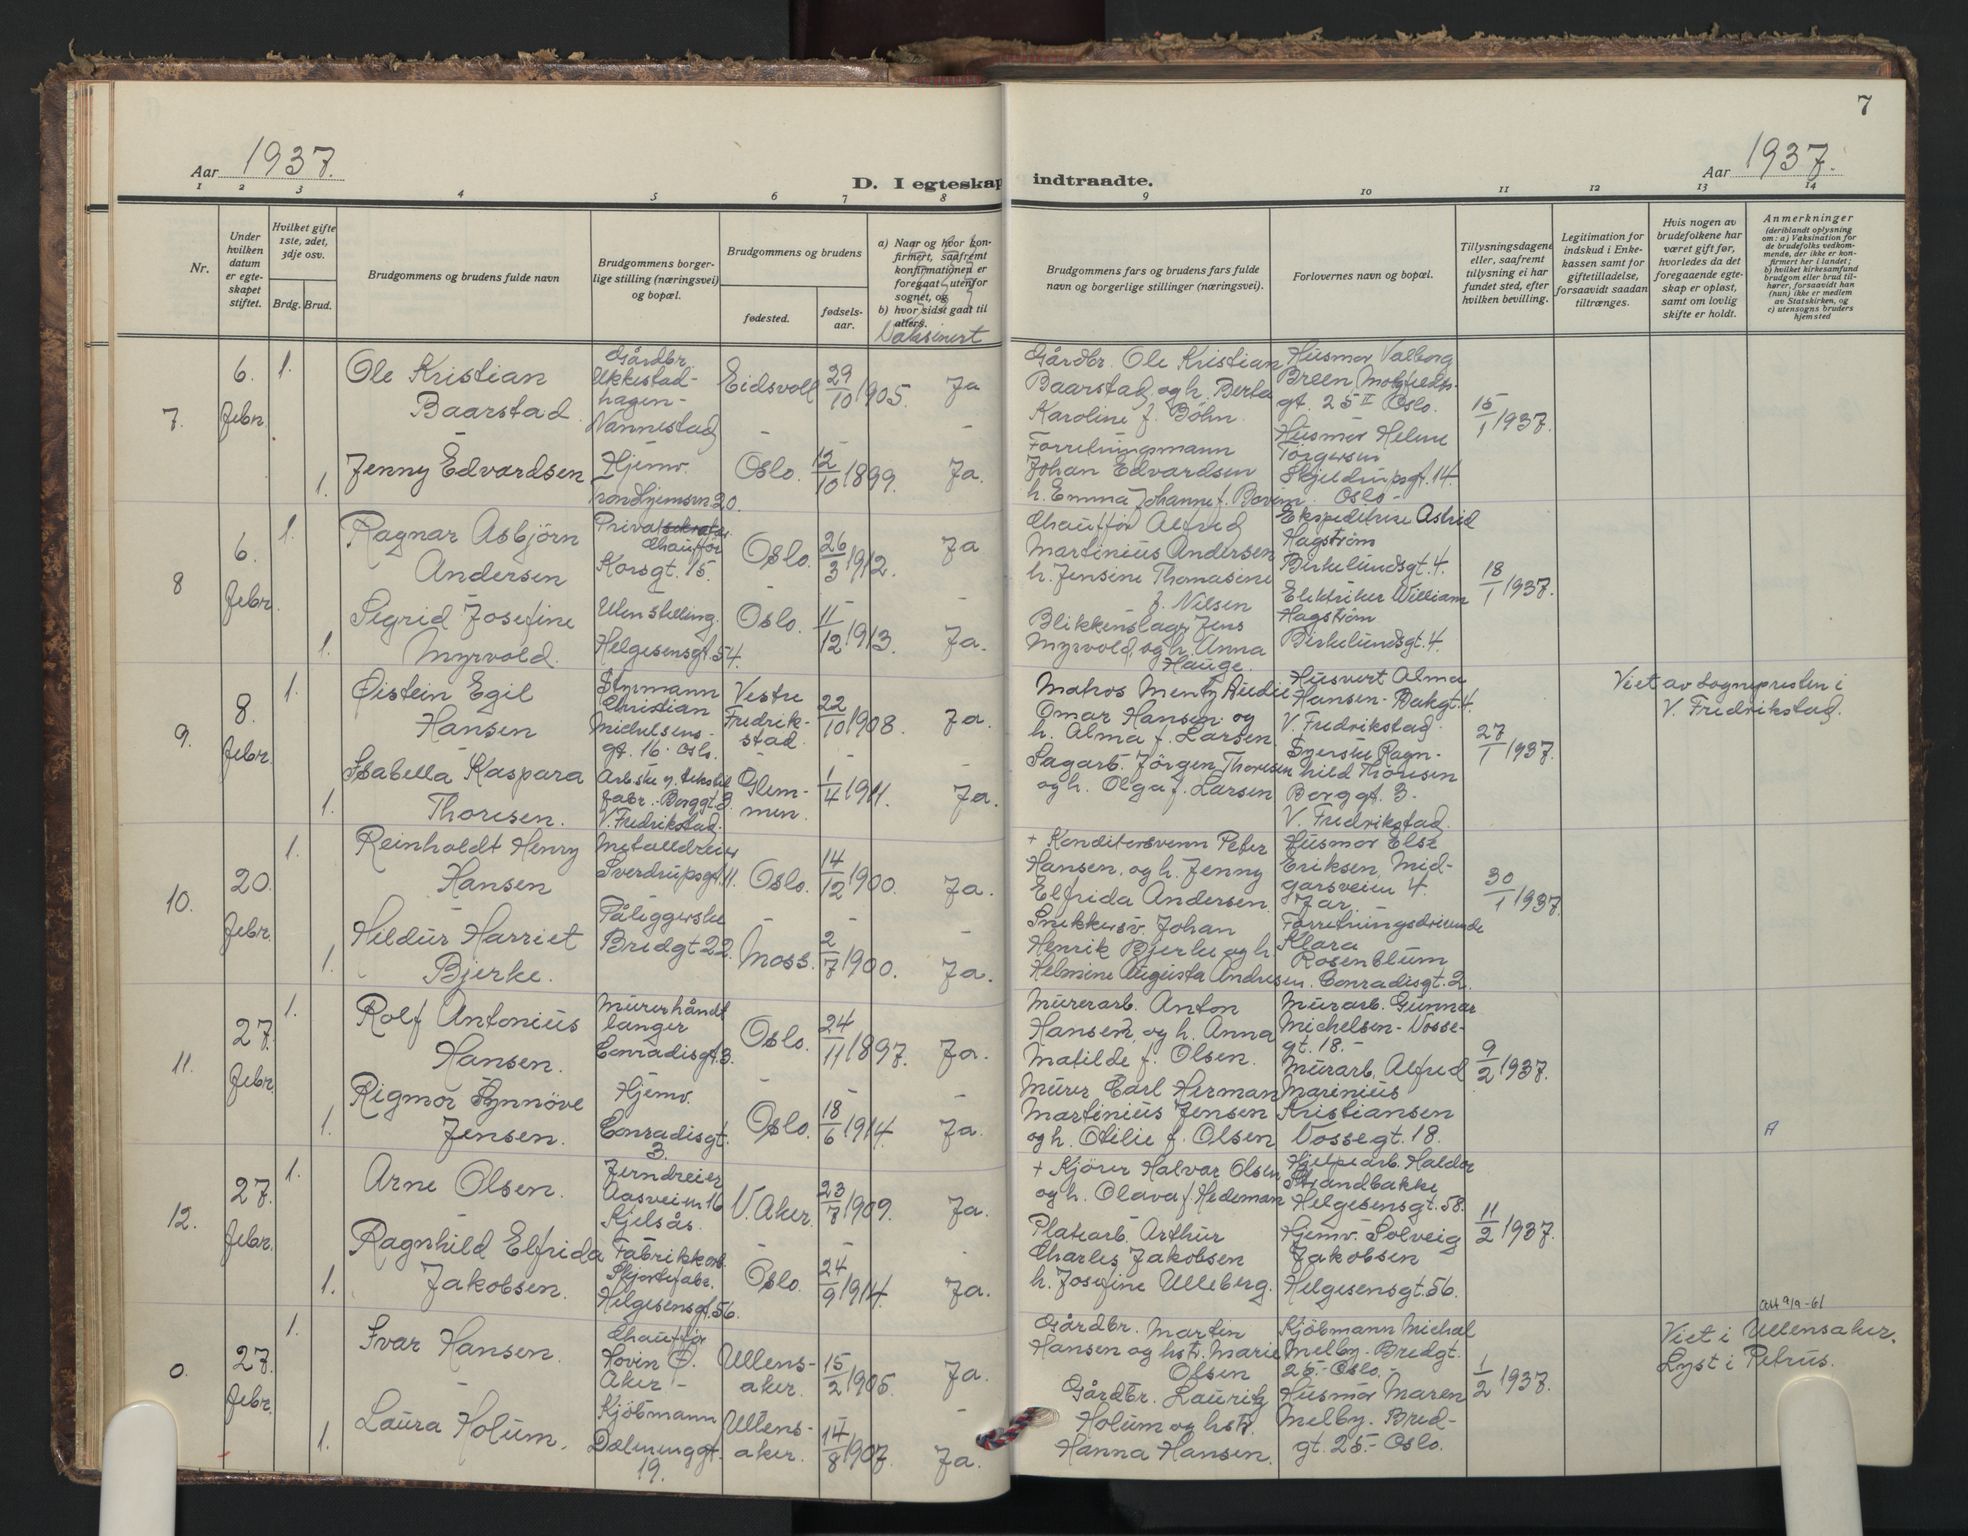 7
Aar 1937.
Aar 1937.
D. I egteskap indtraadte.
1 2 3 4 5 6 7 8 9 10 11 12 13 14
Nr.
Under hvilken datum er egteskapet stiftet.
Hvilket gifte 1ste, 2det, 3dje osv.
Brdg. Brud.
Brudgommens og brudens fulde navn
Brudgommens borgerlige stilling (næringsvei) og bopæl.
Brudgommens og brudens
fødested.
fødselsaar.
a) Naar og hvor konfirmert, saafremt konfirmationen er foregaat utenfor sognet, og
b) hvor sidst gaat til alters.
Vaksinert
Brudgommens fars og brudens fars fulde navn og borgerlige stillinger (næringsvei).
Forlovernes navn og bopæl.
Tillysningsdagene eller, saafremt tillysning ei har fundet sted, efter hvilken bevilling.
Legitimation for indskud i Enkekassen samt for giftetilladelse, forsaavidt saadan tiltrænges.
Hvis nogen av brudefolkene har været gift før, hvorledes da det foregaaende egteskap er opløst, samt om lovlig skifte er holdt.
Anmerkninger
(deriblandt oplysning om: a) Vaksination for de brudefolks vedkommende, der ikke er konfirmert her i landet; b) hvilket kirkesamfund brudgom eller brud tilhører, forsaavidt han (hun) ikke er medlem av Statskirken, og c) utensogns bruders hjemsted
7.
6. Febr.
1.
Ole Kristian
Baarstad
Gårdbr.
Ukkestad-
hagen-
Nannestad
Eidsvoll
29/10 1905.
Ja
Gårdbr. Ole Kristian
Baarstad, og h. Berta
Karoline f. Bøhn.
Husmor Valborg
Breen Motzfeldts-
gt. 25 II Oslo.
15/1 1937.
1.
Jenny Edvardsen
Hjemv.
Trondhjemsvn. 20.
Oslo.
12/10 1899.
Ja.
Forretningsmann
Johan Edvardsen
h. Emma Johanne f. Bovim
Husmor Helene
Torgersen
Skjeldrupsgt. 14
Oslo-
8
6. Febr.
1.
Ragnar Asbjörn
Andersen
Privatsekretær
Chauffør
Korsgt. 15.
Oslo.
26/3 1912.
Ja
Chauffør Alfred
Martinius Andersen
h. Jensine Thomasine
f. Nilsen
Ekspeditrise Astrid
Hagstrøm
Birkelundsgt. 4.
18/1 1937.
1.
Sigrid Josefine
Myrvold.
Uten stilling.
Helgesensgt. 54.
Oslo.
11/12 1913.
Ja.
Blikkenslager Jens
Myrvold, og h. Anna
Hauge.
Elektriker William
Hagstrøm
Birkelundsgt. 4.
9.
8. Febr.
1.
Øistein Egil
Hansen
Styrmann
Christian
Michelsens-
gt. 16. Oslo.
Vestre
Fredrik-
stad.
22/10 1908.
Ja.
Omar Hansen og
h. Alma f. Larsen
Husvert Alma
Hansen- Bakgt. 4.
V. Fredrikstad
27/1 1937.
Viet av sognepresten i
V. Fredrikstad.
1.
Isabella Kaspara
Thoresen.
fabr. Borggt. 3.
V. Fredrikstad.
Glem-
men.
1/4 1911.
Ja.
Sagarb. Jörgen Thoresen
og h. Olga f. Larsen
Syerske Ragn-
hild Thoresen
Borggt. 3.
V. Fredrikstad.
10.
20. Febr.
1.
Reinholdt Henry
Hansen
Metalldreier
Sverdrupsgt. 11.
Oslo.
14/12 1900.
Ja.
+ Konditorsvenn Peter
Hansen, og h. Jenny
Elfrida Andersen
Husmor Else
Eriksen, Mid-
garsveien 4.
Jar.
30/1 1937.
1.
Hildur Harriet
Bjerke.
Påliggerske
Bredgt 22.
Moss.
2/7 1900.
Ja.
Snikkersv. Johan
Henrik Bjerke og h.
Helmine Augusta Andresen.
Forretningsdrivende
Klara
Rosenblum
Conradisgt. 2.
11.
27. Febr.
1.
Rolf Antonius
Hansen.
Murerhåndt
langer
Conradisgt. 3.
Oslo.
24/11 1897.
Ja.
Murerarb. Anton
Hansen, og h. Anna
Matilde f. Olsen.
Murarb. Gunnar
Michelsen- Vosse-
gt. 18.-
9/2 1937.
1.
Rigmor Synnöve
Jensen.
Hjemv.
Conradisgt.
3.
Oslo.
18/6 1914.
Ja.
Murer Carl Herman
Martinius Jensen
og h. Otilie f. Olsen
Murarb. Alfred
Marinius
Kristiansen
Vossegt. 18.
12.
27. Febr.
1.
Arne Olsen.
Jerndreier
Aasveien 16
Kjelsås.
V. Aker.
23/7 1909.
Ja.
+ Kjörer Halvar Olsen
og h. Olava f. Hedeman
Hjelpearb. Haldor
Strandbakke
Helgesensgt. 58.
11/2 1937.
1.
Ragnhild Elfrida
Jakobsen.
Fabrikkarb.
Skjortefabr.
Helgesensgt. 56.
Oslo.
24/9 1914.
Ja.
Platearb. Arthur
Charles Jakobsen
h. Josefine Ulleberg.
Hjemv. Solveig
Jakobsen
Helgesensgt. 56.
0.
27. Febr.
1.
Ivar Hansen.
Chauffør
Hovin Ø.
Aker-
Ullens-
aker.
15/2 1905.
Ja.
Gårdbr. Martin
Hansen og hstr. Marie
Olsen
Kjöbmann Michal
Melby- Bredgt.
25- Oslo.-
1/2 1937.
Viet i Ullensaker.
Lyst i Petrus.
1.
Laura Holum.
Kjöbmann
Dælenenggt.
19.
Ullens-
aker.
14/8 1907.
Ja.
Gårdbr. Lauritz
Holum og hstr.
Hanna Hansen.
Husmor Maren
Melby- Bred-
gt. 25.- Oslo.